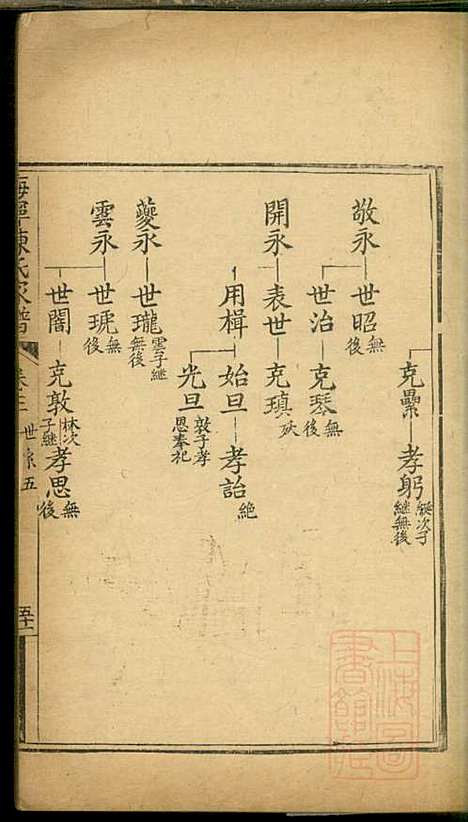 克纍 孝躬 繼無後
敬永 世昭 無後
世治 克琴 無後
開永 表世 克瑱 殀
用楫 始旦 孝詒 絶
光旦 敦子孝思奉祀
夔永 世瓏 雲子繼無後
雲永 世琥 無後
世闇 克敦 林次子繼 孝思 無後
海寧陳氏家譜 卷三 世系五
上海圖書館藏